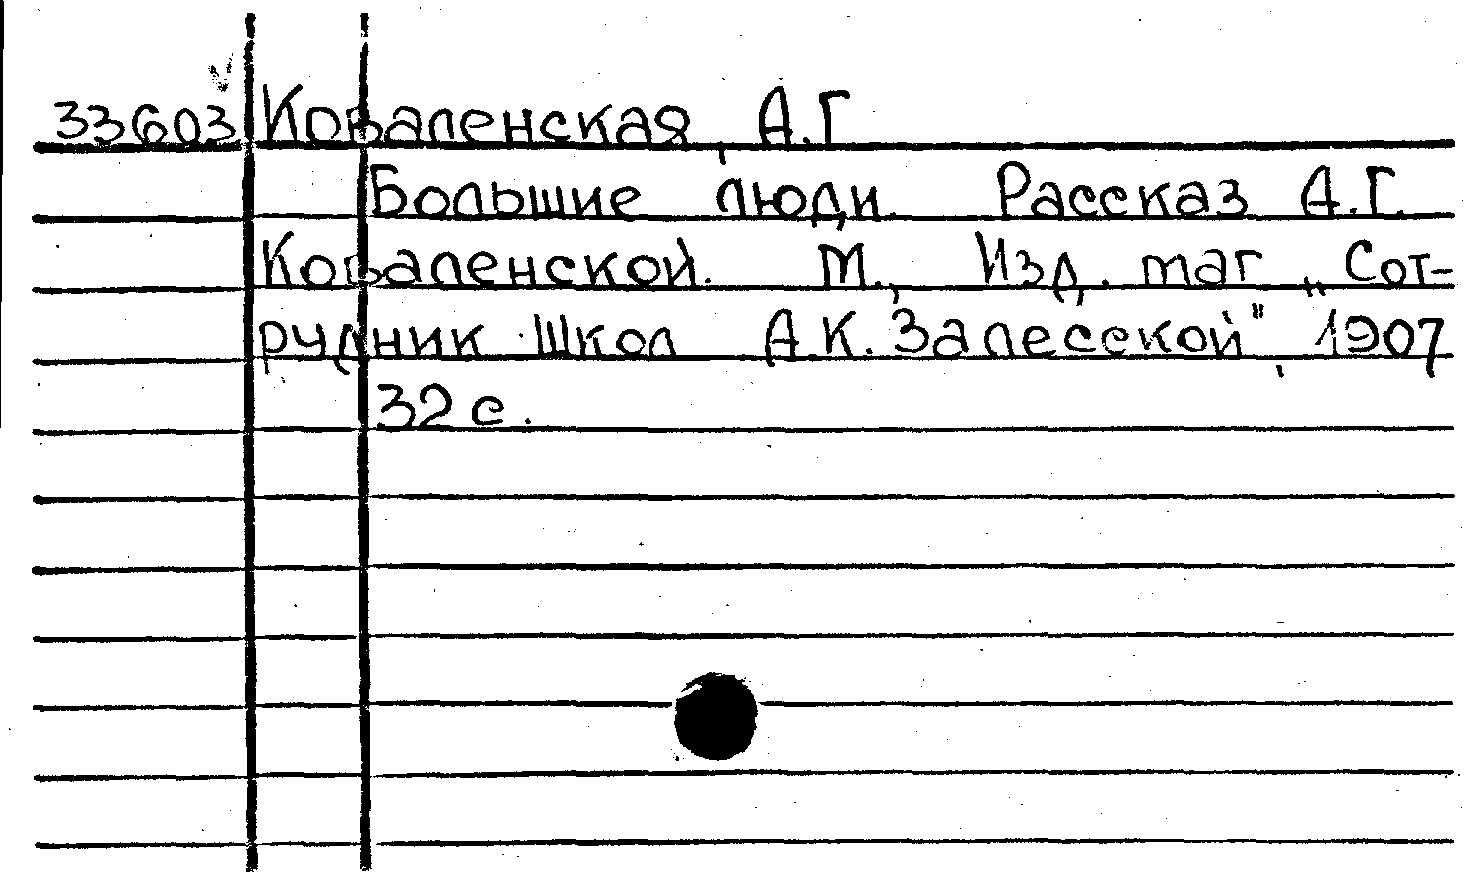 33603 Коваленская, А.Г
Большие люди. Рассказ А.Г.
Коваленской. М., Изд. маг. „Сот-
рудник Школ А.К. Залесской", 1907
32 с.